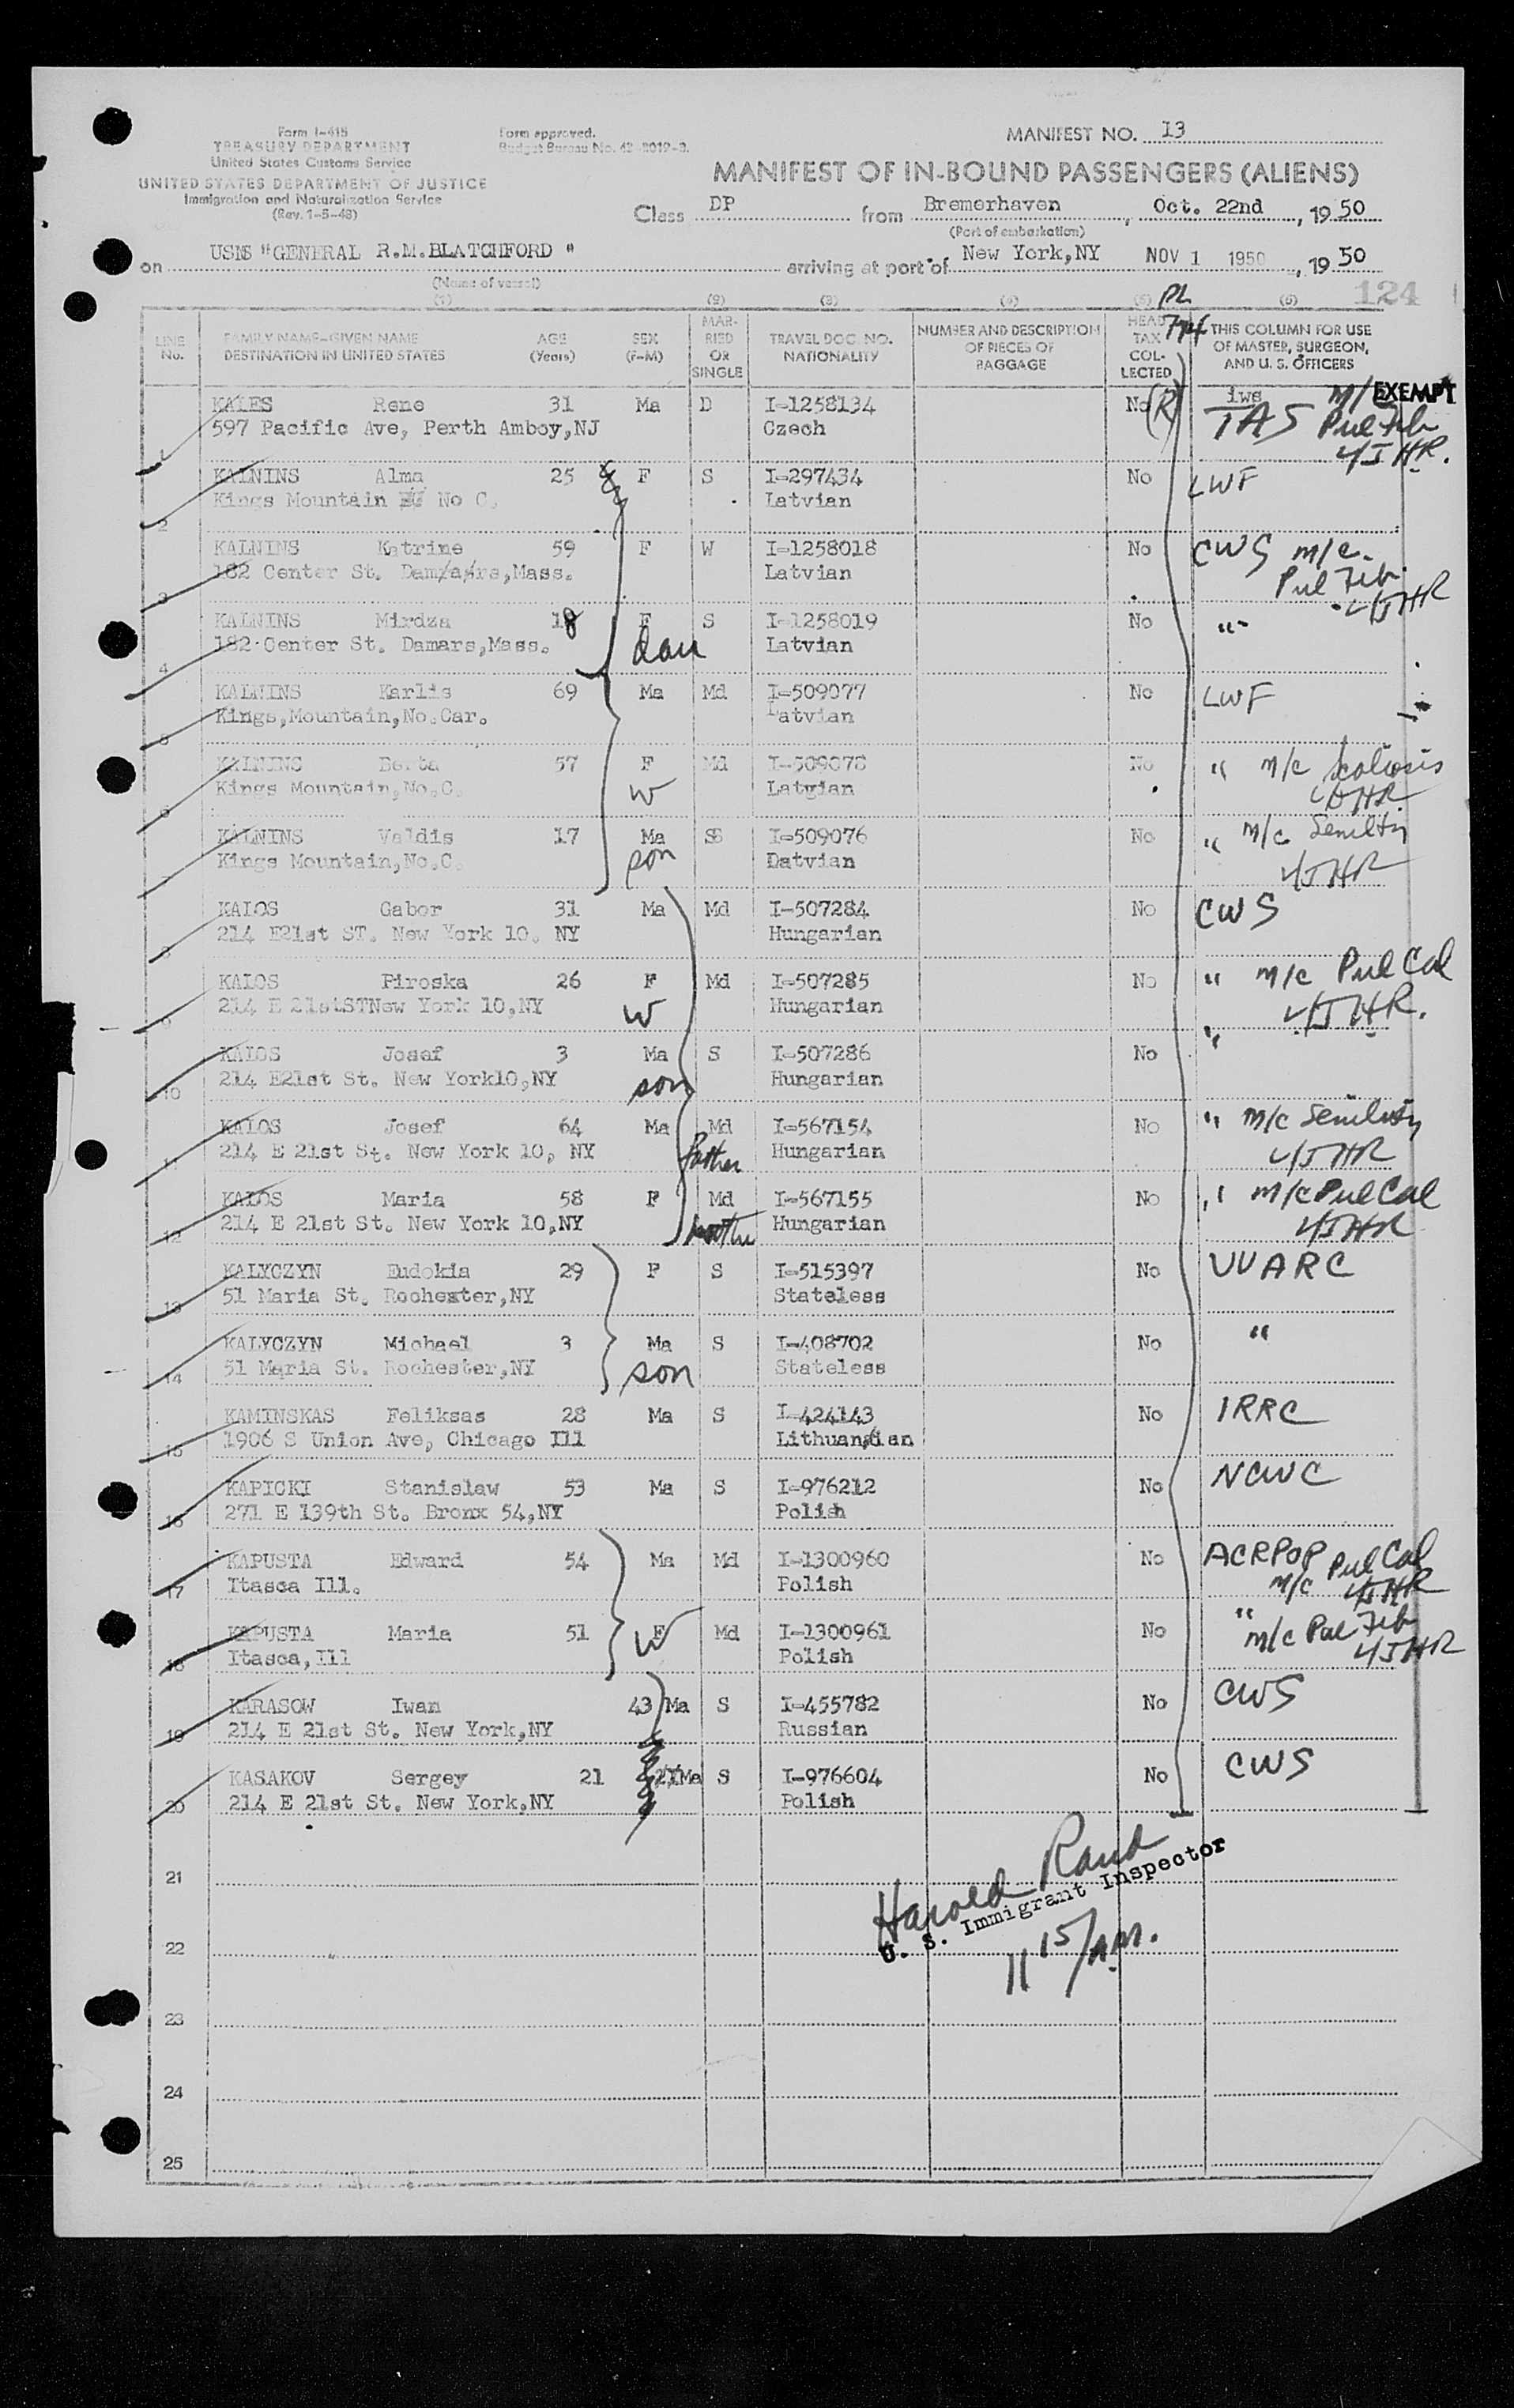 Form I-415
TREASURY DEPARTMENT
United States Customs Service
UNITED STATES DEPARTMENT OF JUSTICE
Immigration and Naturalization Service
(Rev. 1-5-48)
Form approved.
Budget Bureau No.
MANIFEST NO. 13
MANIFEST OF IN-BOUND PASSENGERS (ALIENS)
Class DP from Bremerhaven, Oct. 22nd, 1950
(Port of embarkation)
on USNS "GENERAL R.M.BLATCHFORD " arriving at port of New York,NY NOV 1 1950, 1950
(Name of vessel)
124
(1) (2) (3) (4) (5) (6)
LINE No. FAMILY NAME-GIVEN NAME DESTINATION IN UNITED STATES AGE (Years) SEX (F-M) MARRIED OR SINGLE TRAVEL DOC. NO. NATIONALITY NUMBER AND DESCRIPTION OF PIECES OF BAGGAGE HEAD TAX COLLECTED THIS COLUMN FOR USE OF MASTER, SURGEON, AND U. S. OFFICERS
1 KALES Rene 31 Ma D I-1258134 No (R) iws TAS M/C EXEMPT
597 Pacific Ave, Perth Amboy,NJ Czech Pul Fib
2 KALNINS Alma 25 F S I-297434 No LWF
Kings Mountain No C. Latvian
3 KALNINS Katrine 59 F W I-1258018 No CWS m/c.
182 Center St. Mass. Latvian Pul Fib.
4 KALNINS Mirdza 18 F S I-1258019 No "
182 Center St. Damars,Mass. dau Latvian
5 KALNINS Karlis 69 Ma Md I-509077 No LWF
Kings,Mountain,No.Car. Latvian
6 KALNINS Berta 57 F Md I-509078 No " m/c
Kings Mountain,No.C. W Latvian
7 KALNINS Valdis 17 Ma S I-509076 No " m/c
Kings Mountain,No.C. son Datvian
8 KALOS Gabor 31 Ma Md I-507284 No CWS
214 E21st ST. New York 10. NY Hungarian
9 KALOS Piroska 26 F Md I-507285 No " m/c Pul Cal
214 E 21stSTNew York 10,NY W Hungarian
10 KALOS Josef 3 Ma S I-507286 No "
214 E21st St. New York10,NY son Hungarian
11 KALOS Josef 64 Ma Md I-567154 No " m/c Senility
214 E 21st St. New York 10, NY father Hungarian
12 KALOS Maria 58 F Md I-567155 No " m/c Pul Cal
214 E 21st St. New York 10,NY mother Hungarian
13 KALYCZYN Eudokia 29 F S I-515397 No UUARC
51 Maria St. Rochester,NY Stateless
14 KALYCZYN Michael 3 Ma S I-408702 No "
51 Maria St. Rochester,NY son Stateless
15 KAMINSKAS Feliksas 28 Ma S I-424143 No IRRC
1906 S Union Ave, Chicago Ill
16 KAPICKI Stanislaw 53 Ma S I-976212 No NCWC
271 E 139th St. Bronx 54,NY Polish
17 KAPUSTA Edward 54 Ma Md I-1300960 No ACRPOP Pul Cal
Itasca Ill. Polish m/c
18 KAPUSTA Maria 51 F Md I-1300961 No "
Itasca,Ill W Polish m/c Pul Fib
19 KARASOW Iwan 43 Ma S I-455782 No CWS
214 E 21st St. New York,NY Russian
20 KASAKOV Sergey 21 Ma S I-976604 No CWS
214 E 21st St. New York.NY Polish
Harold Rand
U. S. Immigrant Inspector
11 15/AM.
21
22
23
24
25